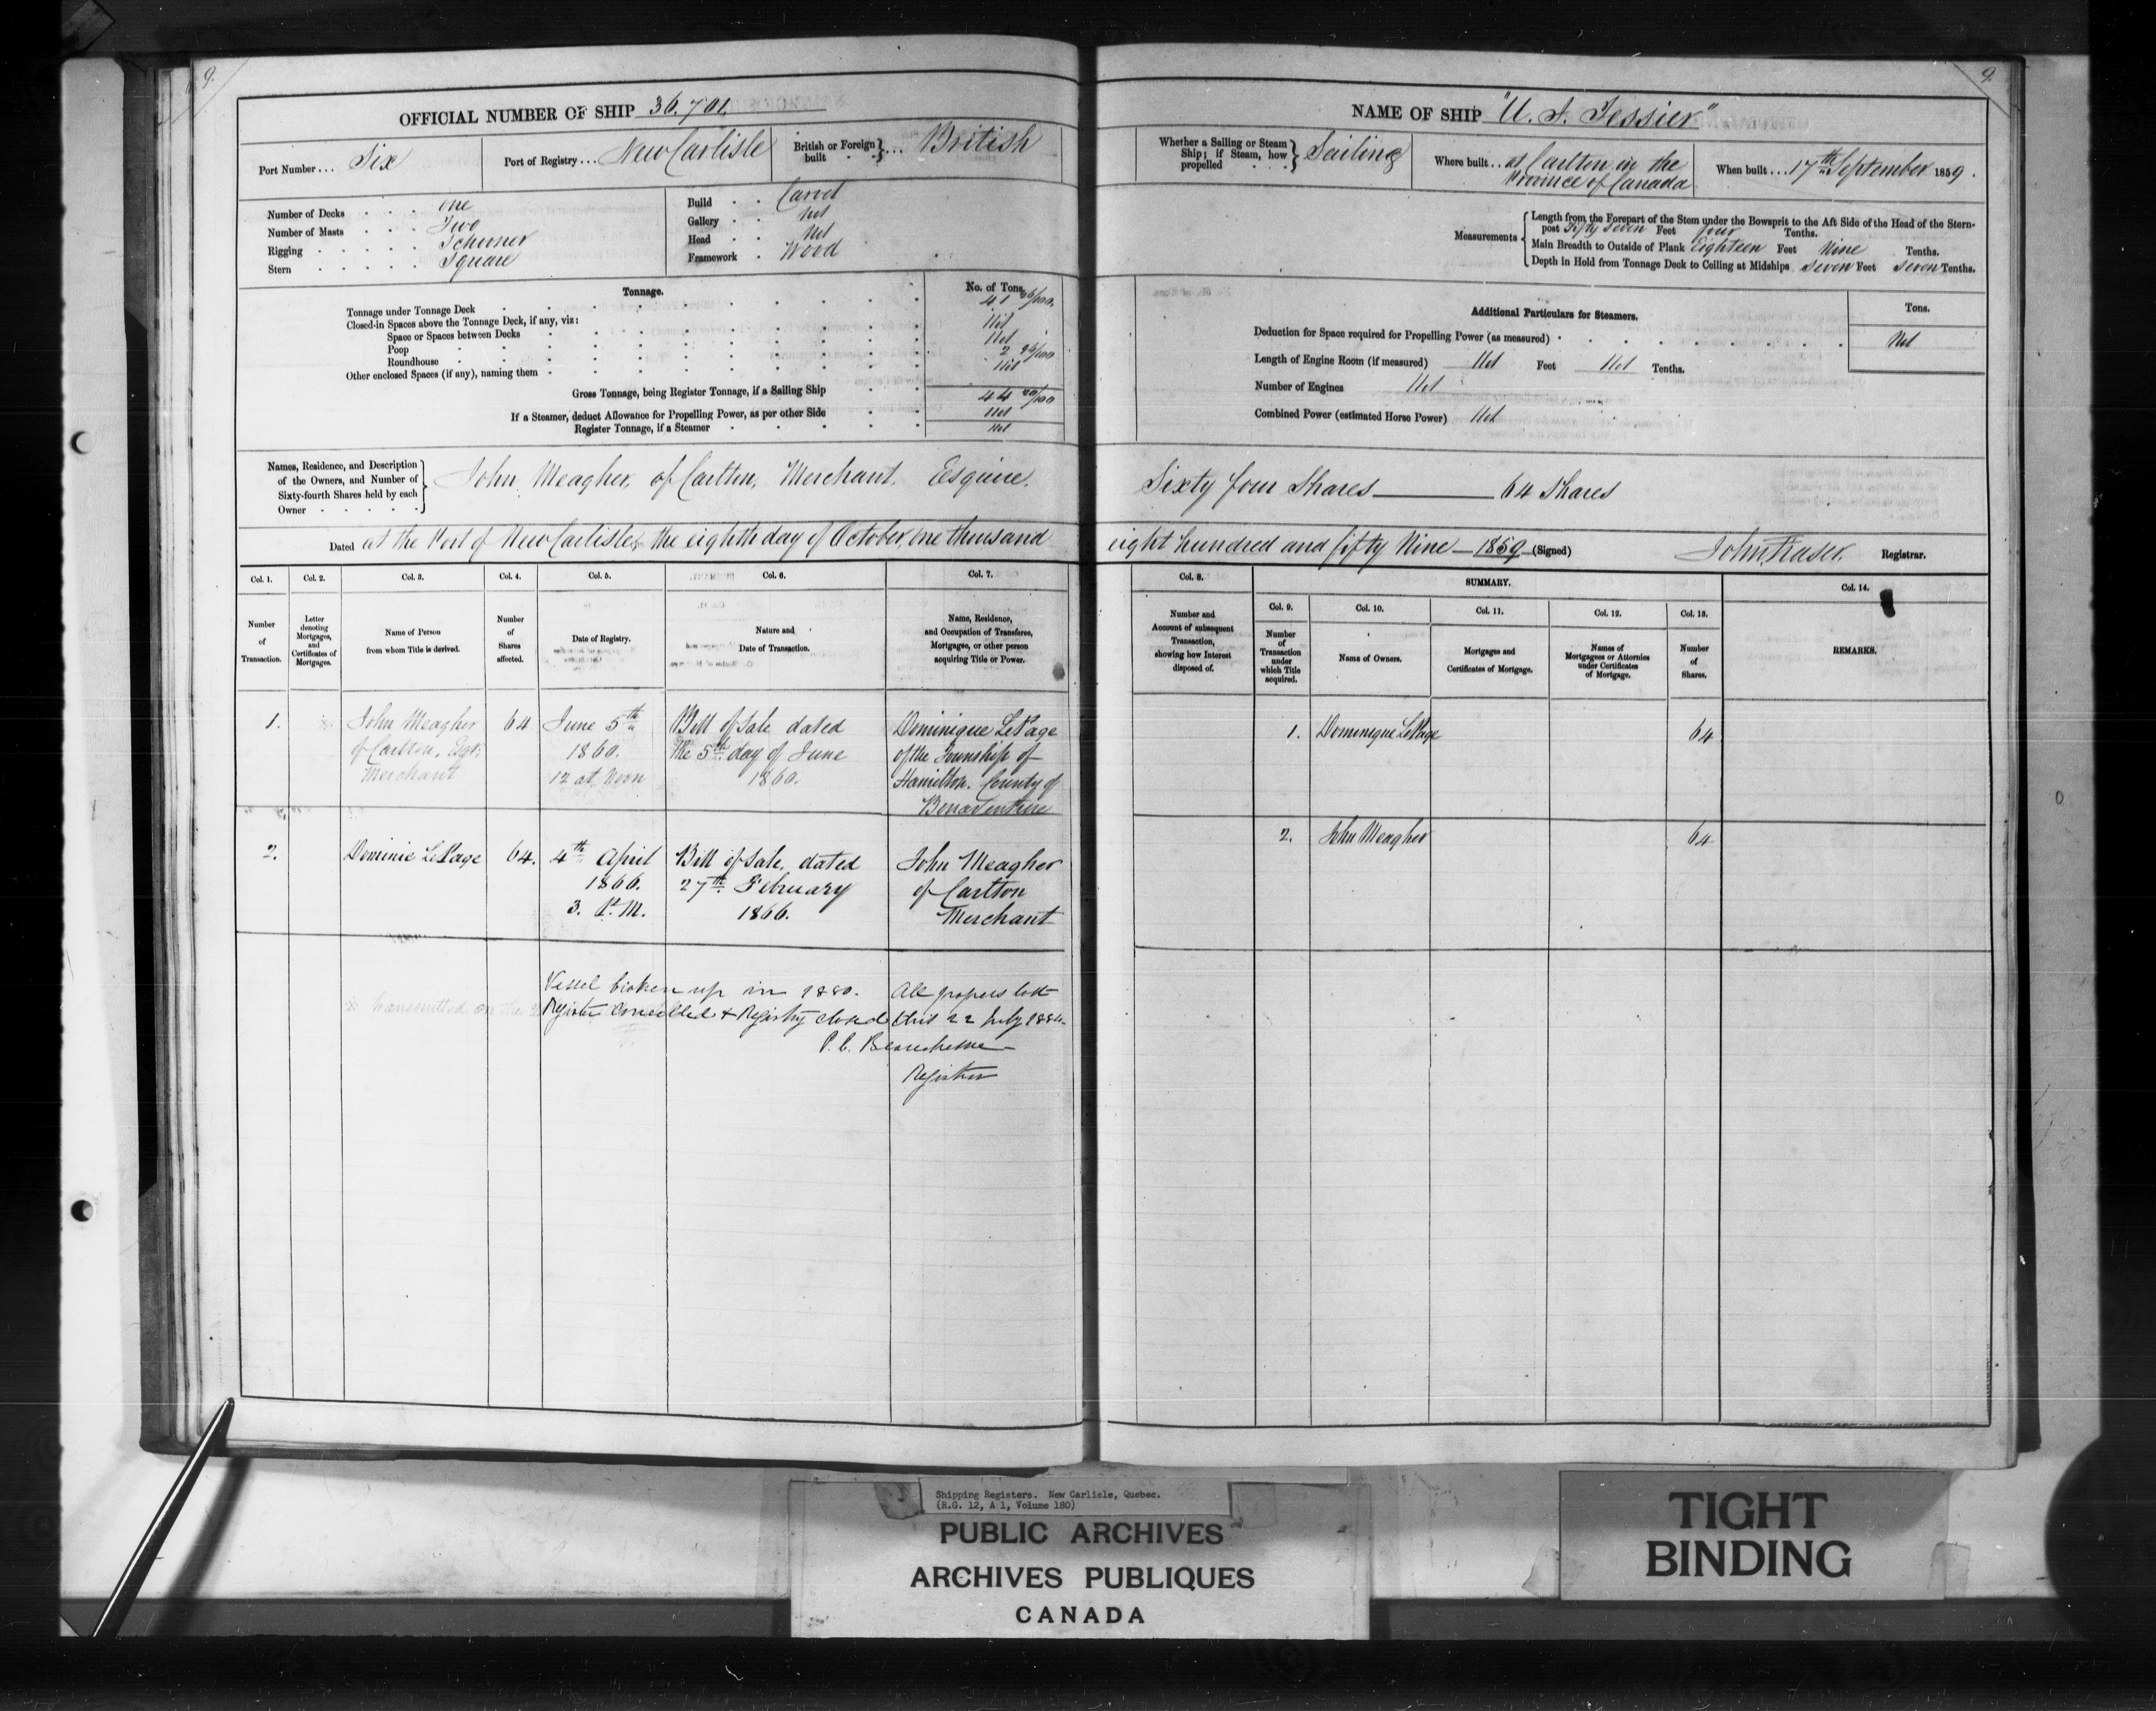 9.
OFFICIAL NUMBER OF SHIP 36.701.
Port Number... Six
Port of Registry... New Carlisle
British or Foreign built } ... British
Number of Decks . . . One
Number of Masts . . . Two
Rigging . . . . . Schooner
Stern . . . . . Square
Build . . Carvel
Gallery . . Nil
Head . . Nil
Framework . Wood
Tonnage.
No. of Tons.
Tonnage under Tonnage Deck 41
Closed-in Spaces above the Tonnage Deck, if any, viz:
Space or Spaces between Decks Nil
Poop Nil
Roundhouse 2 96/100
Other enclosed Spaces (if any), naming them Nil
Gross Tonnage, being Register Tonnage, if a Sailing Ship 44
If a Steamer, deduct Allowance for Propelling Power, as per other Side Nil
Register Tonnage, if a Steamer Nil
Names, Residence, and Description
of the Owners, and Number of
Sixty-fourth Shares held by each
Owner
John Meagher, of Carlton, Merchant, Esquire.
Dated at the Port of New Carlisle, the eighth day of October, one thousand
Col. 1. Col. 2. Col. 3. Col. 4. Col. 5. Col. 6. Col. 7.
Number of Transaction.
Letter denoting Mortgages, and Certificates of Mortgages.
Name of Person from whom Title is derived.
Number of Shares affected.
Date of Registry.
Nature and Date of Transaction.
Name, Residence, and Occupation of Transferee, Mortgagee, or other person acquiring Title or Power.
1. John Meagher 64 June 5th Bill of Sale dated Dominique LePage
of Carlton, Esqr. 1860. the 5th day of June of the Township of
Merchant 12 at Noon 1860. Hamilton. County of
Bonaventure
2. Dominic LePage 64. 4th April Bill of Sale, dated John Meagher
1866. 27th February of Carlton
3. P.M. 1866. Merchant
Vessel broken up in 1880. All papers lost
※ transmitted on the
Register Cancelled & Registry closed this 22 July 1884.
P. C. Beauchesne
Register
9.
NAME OF SHIP "U. J. Tessier"
Whether a Sailing or Steam Ship; if Steam, how propelled } Sailing
Where built . . at Carlton in the
Province of Canada
When built . . . 17th September 1859.
Measurements
Length from the Forepart of the Stem under the Bowsprit to the Aft Side of the Head of the Stern-
post Fifty Seven Feet four Tenths.
Main Breadth to Outside of Plank Eighteen Feet Nine Tenths.
Depth in Hold from Tonnage Deck to Ceiling at Midships Seven Feet Seven Tenths.
Additional Particulars for Steamers.
Tons.
Deduction for Space required for Propelling Power (as measured) Nil
Length of Engine Room (if measured) Nil Feet Nil Tenths.
Number of Engines Nil
Combined Power (estimated Horse Power) Nil
Sixty four Shares 64 Shares
eight hundred and fifty Nine 1859 (Signed) John Fraser. Registrar.
Col. 8.
SUMMARY.
Col. 14.
Col. 9. Col. 10. Col. 11. Col. 12. Col. 13.
Number and Account of subsequent Transaction, showing how Interest disposed of.
Number of Transaction under which Title acquired.
Name of Owners.
Mortgages and Certificates of Mortgage.
Names of Mortgagees or Attornies under Certificates of Mortgage.
Number of Shares.
REMARKS.
1. Dominique LePage 64
2. John Meagher 64
Shipping Registers. New Carlisle, Quebec.
(R.G. 12, A 1, Volume 180)
PUBLIC ARCHIVES
ARCHIVES PUBLIQUES
CANADA
TIGHT
BINDING